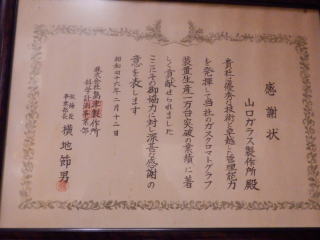 感謝状
山口ガラス製作所殿
貴社は優秀な技術と卓越した管理能力
を発揮して当社のガスクロマトグラフ
装置生産一万台突破の業績に著
しく貢献せられました
ここにその御協力に対し深甚の感謝の
意を表します
昭和四十六年二月十二日
株式会社島津製作所
科学計測事業部
取締役
事業部長
横地節男